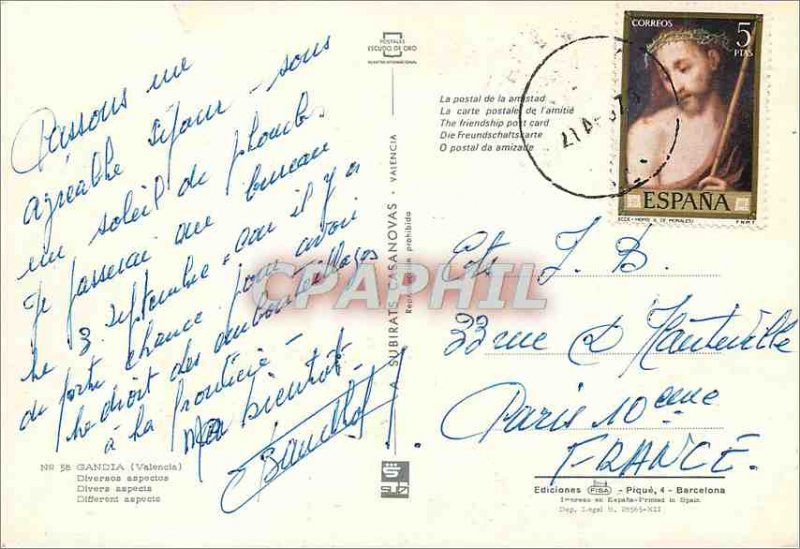 Passons un
agréable séjour - sous
un soleil de plomb.
Je passerai au bureau
le 3 septembre - car il y a
de forte chance pour avoir
le droit des embouteillages
à la frontière -
bientôt.
Nº 58 GANDIA (Valencia)
Diversos aspectos
Divers aspects
Different aspects
POSTALES
ESCUDO DE ORO
A. SUBIRATS CASANOVAS - VALENCIA
Reproducción prohibida
La postal de la amistad
La carte postale de l'amitié
The friendship post card
Die Freundschaftskarte
O postal da amizade
CORREOS
5
PTAS
ESPAÑA
ECCE-HOMO (L. DE MORALES)
F.N.M.T.
CPAPHIL
Ets J. B.
33 rue d'Hauteville
Paris 10ème
FRANCE.
Ediciones FISA - Piqué, 4 - Barcelona
Impreso en España-Printed in Spain
Dep. Legal B. 28565-XII